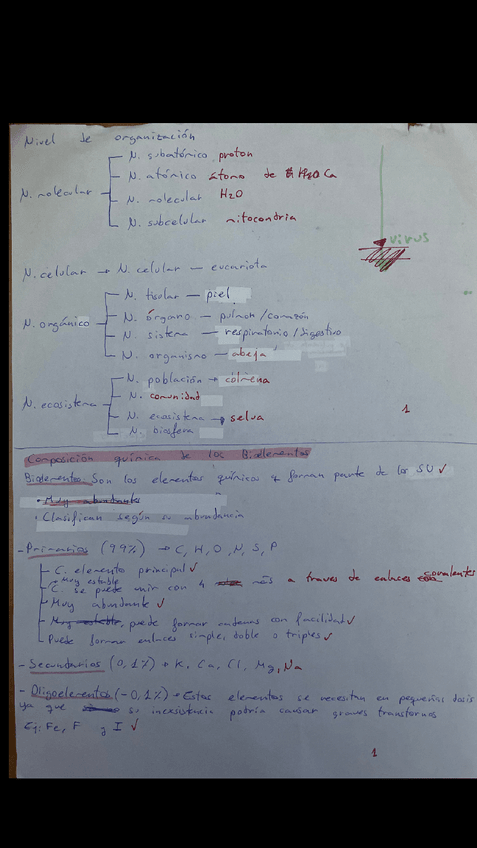 Nivel de organización
N. molecular
N. subatómico proton
N. atómico átomo de Ca
N. molecular H2O
N. subcelular mitocondria
virus
N. celular → N. celular — eucariota
N. orgánico
N. tisular — piel
N. órgano — pulmon / corazón
N. sistema — respiratorio / digestivo
N. organismo — abeja
N. ecosistema
N. población → colmena
N. comunidad
N. ecosistema → selva
N. biosfera
1
Composición química de los Bioelementos
Bioelementos: Son los elementos químicos q forman parte de los SV ✓
• Muy abundantes
• Clasifican según su abundancia
- Primarios (99%) → C, H, O, N, S, P
C. elemento principal ✓
→ Muy estable
C. se puede unir con 4 más a traves de enlaces covalentes
Muy abundante ✓
Muy estable, puede formar cadenas con facilidad ✓
Puede formar enlaces simple, doble o triples ✓
- Secundarios (0,1%) → K, Ca, Cl, Mg, Na
- Oligoelementos (-0,1%) → Estos elementos se necesitan en pequeñas dosis
ya que su inexistencia podría causar graves transtornos
Ej: Fe, F y I ✓
1